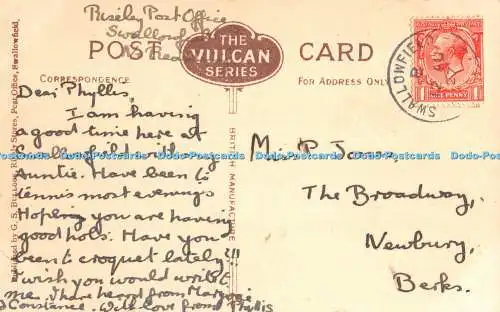 Riseley Post Office
Swallowf
POST
THE
VULCAN
SERIES
CARD
CORRESPONDENCE
FOR ADDRESS ONLY
SWALLOWFIELD
ONE PENNY
Dear Phyllis,
I am having
a good time here at
with my
Auntie. Have been to
tennis most evenings
Hoping you are having
good hols. Have you
been to croquet lately?!!
I wish you would write to
me. I have heard from
Constance. With love from Phyllis
BRITISH MANUFACTURE
Published by G. S. Stores, Post Office, Swallowfield.
The Broadway,
Newbury,
Berks.
Dodo-Postcards Dodo-Postcards Dodo-Postcards Dodo-Postcards Dodo-Postcards